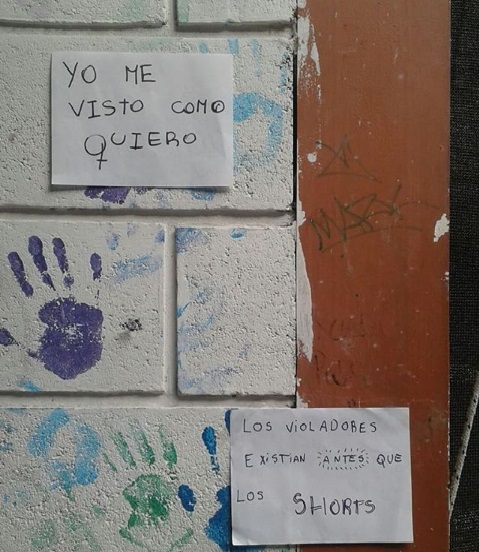 YO ME
VISTO COMO
QUIERO
LOS ViOLADORES
EXiSTIAN ANTES QUE
LOS SHORTS